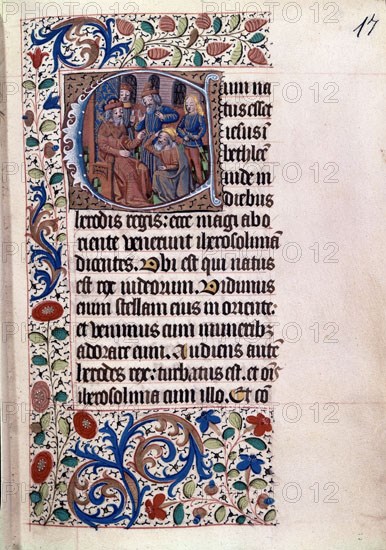 17
Cum na
tus esset
iesus i
bethleē
iude in
diebus
herodis regis: ecce magi ab o
riente venerunt iherosolimā
dicentes. Ubi est qui natus
est rex iudeorum. Vidimus
enim stellam eius in oriente:
et venimus cum muneribz
adorare eum. Audiens autē
herodes rex: turbatus est. et oīs
iherosolima cum illo. Et cō
PHOTO 12